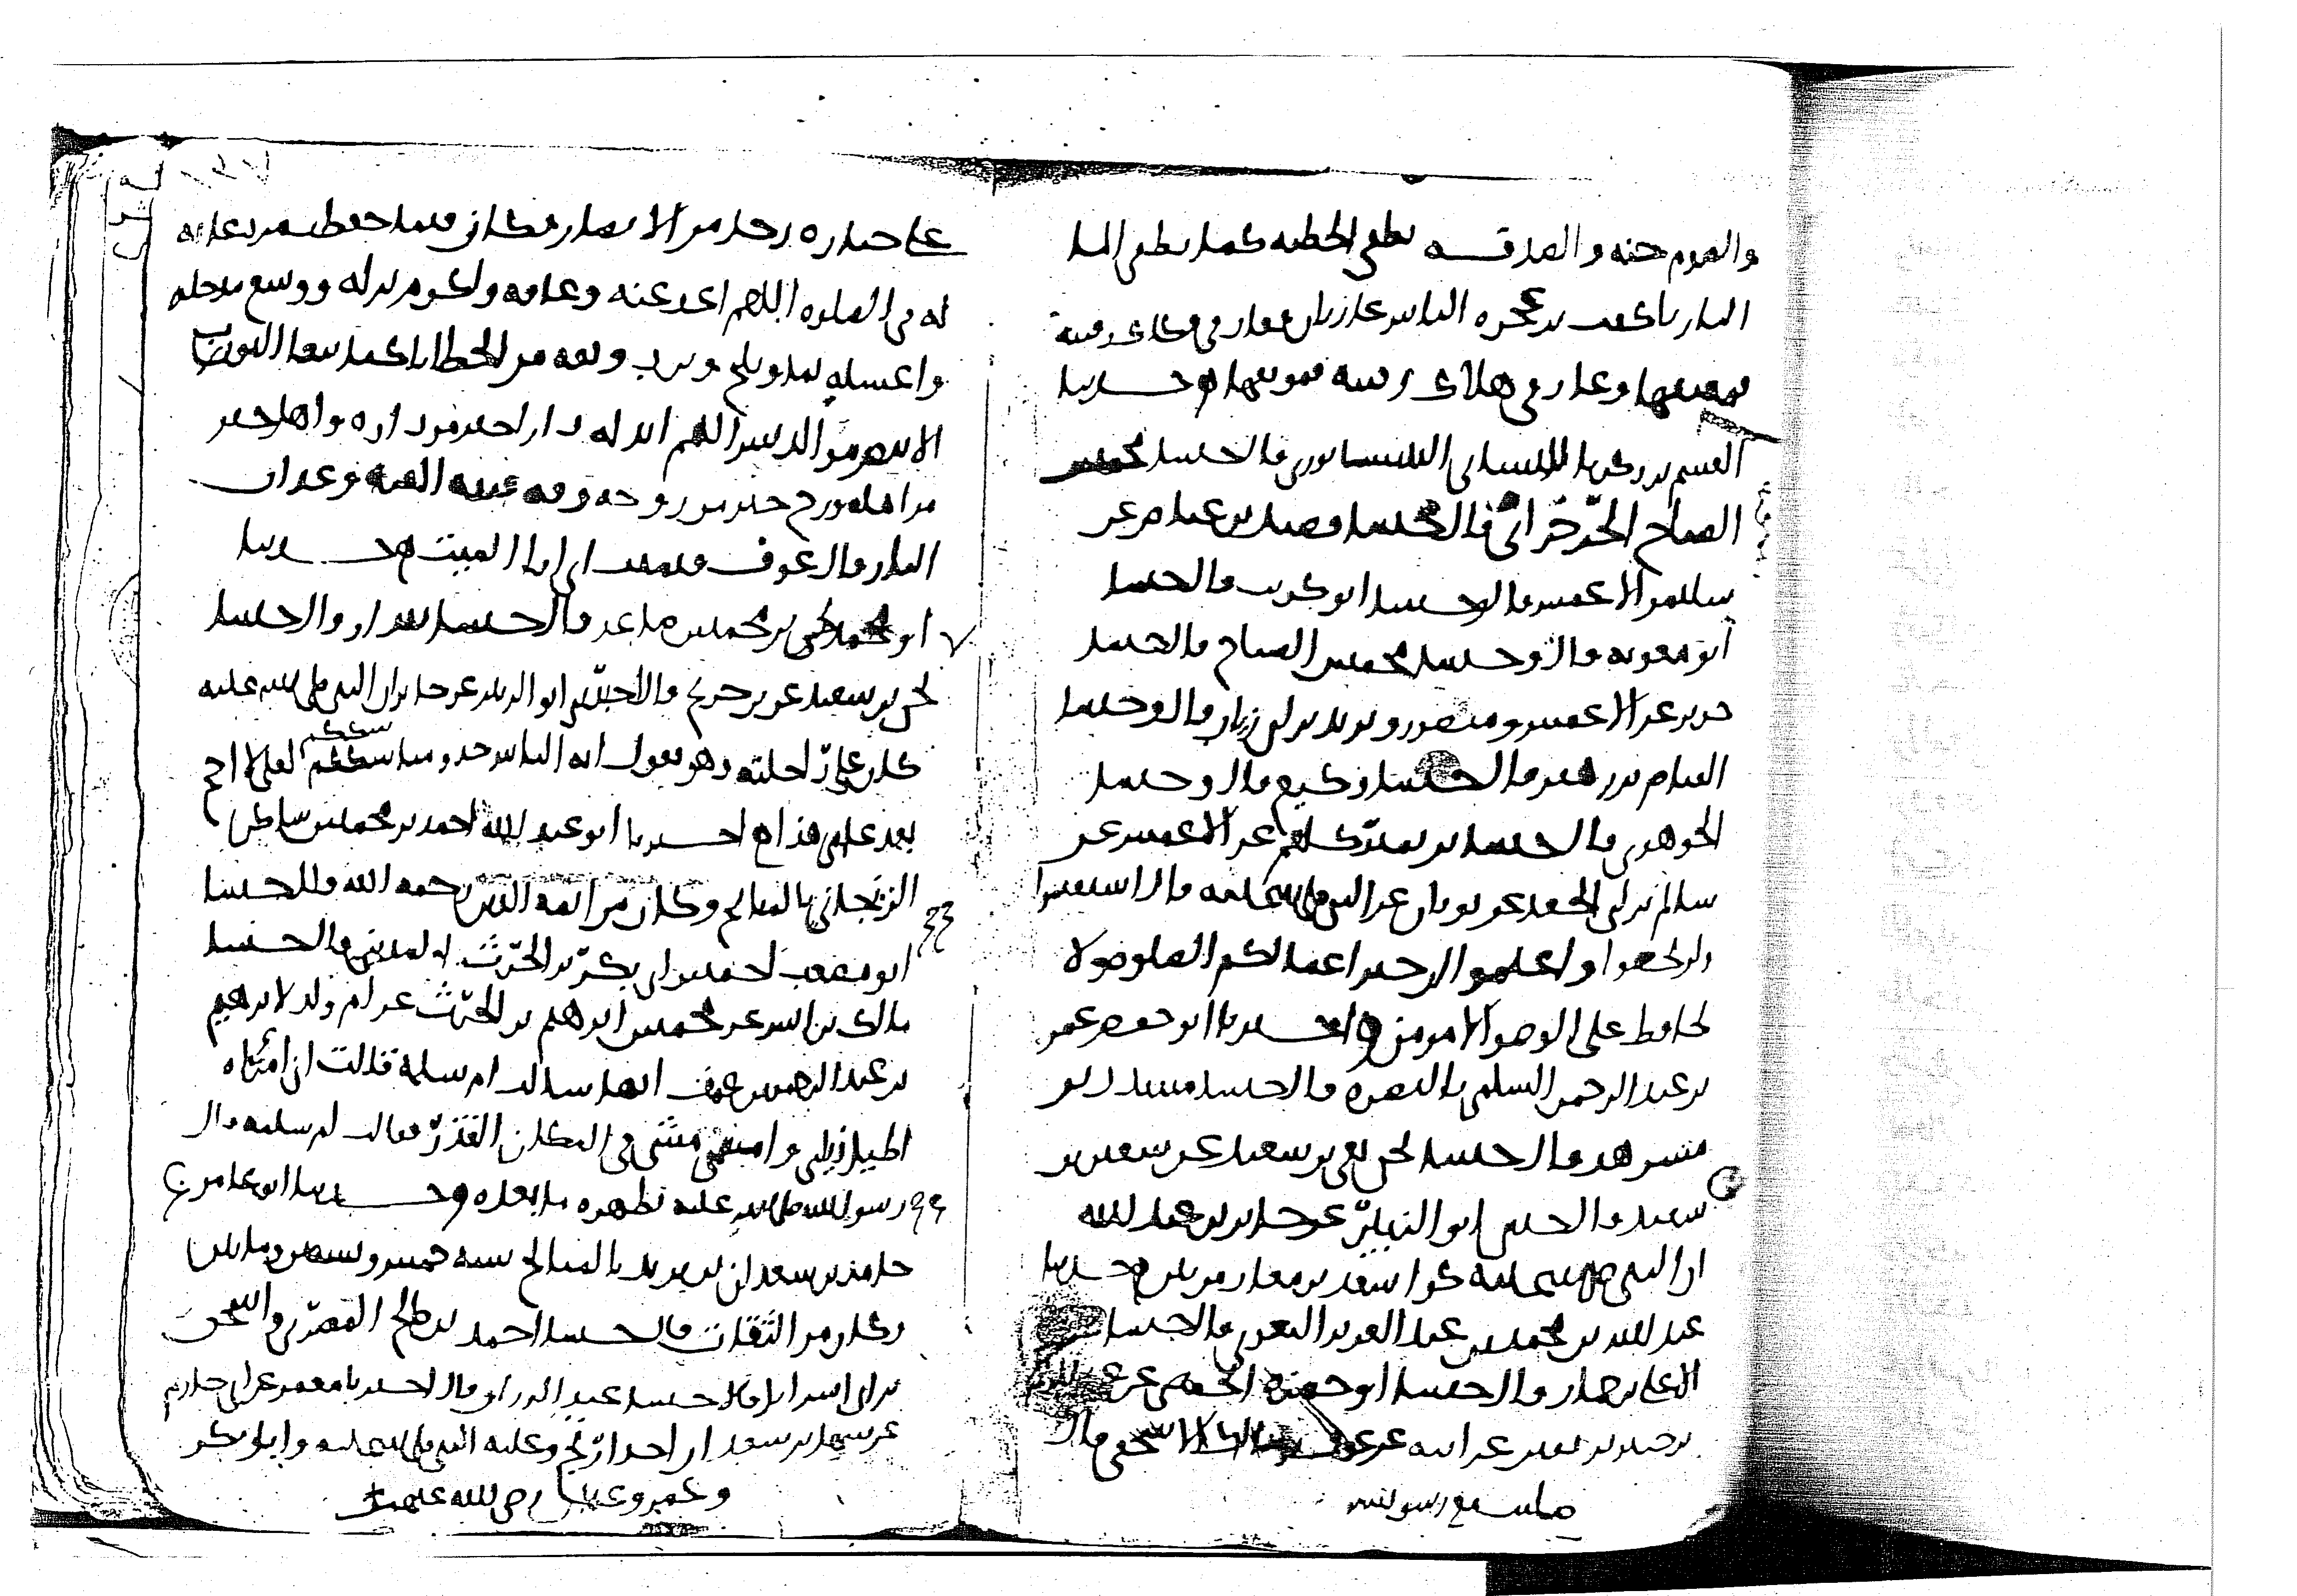 والصوم جنة والصدقة تطفى الخطية كما يطفى الما
النار يا كعب بن عجرة الناس غاديان فغاد في فكاك رقبته
فمعتقها وغاد في هلاك رقبته فموبقها حدثنا
القسم بن زكريا النيسابوري قال حدثنا محمد بن
الصباح الجرجرائي قال حدثنا فضيل بن عياض عن
سليمن الاعمش قال وحدثنا ابو كريب قال حدثنا
ابو معوية قال وحدثنا محمد بن الصباح قال حدثنا
جرير عن الاعمش ومنصور ويزيد بن ابي زياد قال وحدثنا
قال حدثنا وكيع قال وحدثنا
الجوهري قال حدثنا عن الاعمش عن
سالم بن ابي الجعد عن ثوبان عن النبي صلى الله عليه قال استقيموا
ولن تحصوا واعلموا ان خير اعمالكم الصلوة ولا
يحافظ على الوضوء الا مومن اخبرنا ابو حفص عمر
بن عبد الرحمن السلمي بالبصرة قال حدثنا مسدد بن
مسرهد قال حدثنا يحيى بن سعيد عن سفين بن
سعيد قال حدثني ابو الزبير عن جابر بن عبد الله
ان النبي صلى الله عليه كوا سعد بن معاذ مرتين حدثنا
عبد الله بن محمد بن عبد العزيز البغوي قال حدثنا
قال حدثنا ابو حمزة الحمصي عن عبد الرحمن
بن جبير بن نفير عن ابيه عن عوف بن مالك الاشجعي قال
سمع رسول الله
١٣٧
على جنازة رجل من الانصار فكان فيما حفظ من دعايه
له في الصلوة اللهم اعف عنه وعافه واكرم نزله ووسع مدخله
واغسله بما وثلج وبرد ونقه من الخطايا كما ينقا الثوب
الابيض من الدنس اللهم ابدله دارا خيرا من داره واهلا خير
من اهله وزوج خير من زوجه وقه فتنة القبر وعذاب
النار قال عوف فتمنيت اني انا الميت حدثنا
ابو محمد يحيى بن محمد بن صاعد قال حدثنا بندار قال حدثنا
يحيى بن سعيد عن بن جريج قال اخبرني ابو الزبير عن جابر ان النبي صلى الله عليه
كان على راحلته وهو يقول ايه الناس خذو مناسككم لعلي لا احج
سككم
بعد عامي هذا اخبرنا ابو عبد الله احمد بن محمد بن ساكن
الزنجاني بالميانج وكان من ايمة الدين رحمه الله قال حدثنا
ابو مصعب احمد بن ابي بكر بن الحرث المديني قال حدثنا
مالك بن انس عن محمد بن ابرهيم بن الحرث عن ام ولد لابرهيم
بن عبد الرحمن بن عوف انها سالت ام سلمة فقالت اني امراة
اطيل ذيلي وامشي في المكان القذر فقالت ام سلمة قال
رسول الله صلى الله عليه يطهره ما بعده وحدثنا ابو عامر
حامد بن سعدان بن يزيد بالميانج سنة خمس وتسعين ومايتين
وكان من الثقات قال حدثنا احمد بن صالح المصري واسحق
بن ابي اسرايل قالا حدثنا عبد الرزاق قال اخبرنا معمر عن ابي حازم
عن سهل بن سعد ان احدا ارتج وعليه النبي صلى الله عليه وابو بكر
وعمر وعثمان رضي الله عنهم